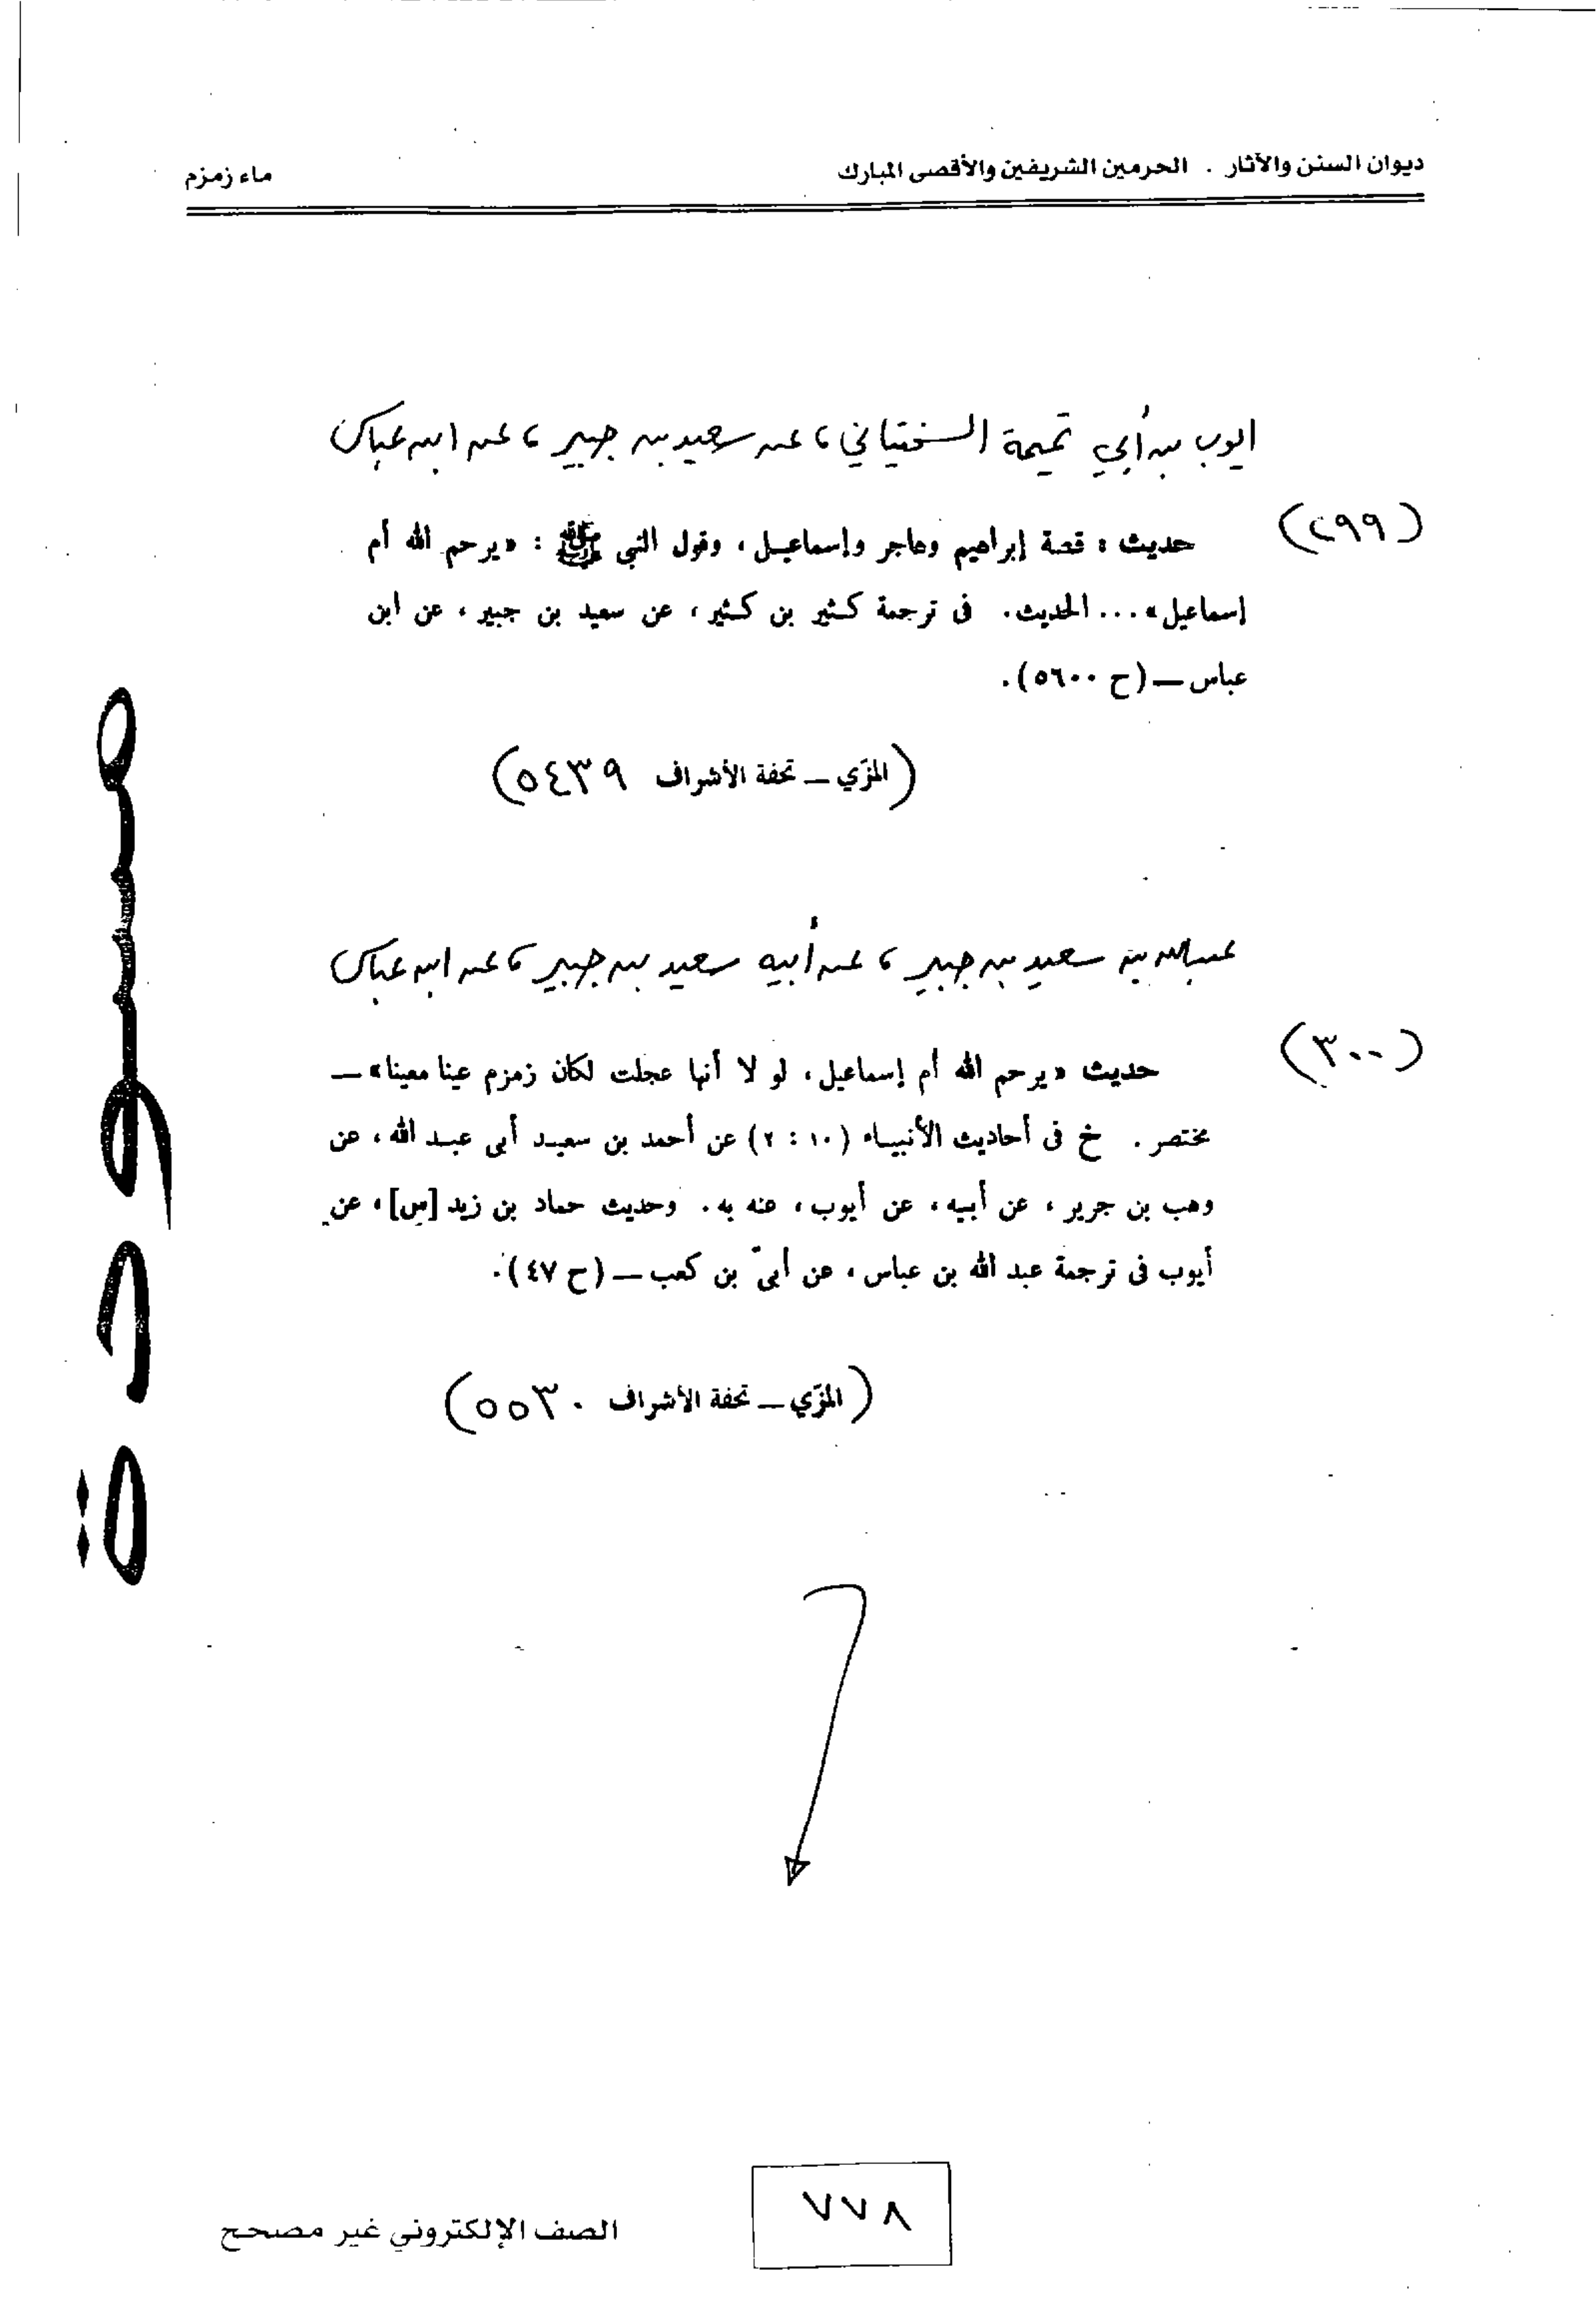 ديوان السنن والآثار . الحرمين الشريفين والأقصى المبارك
ماء زمزم
ايوب بن أبي تميمة السختياني ، عن سعيد بن جبير ، عن ابن عباس
(٢٩٩)
حديث : قصة إبراهيم وهاجر وإسماعيل ، وقول النبى ﷺ : «يرحم الله أم
إسماعيل» ... الحديث . فى ترجمة كثير بن كثير ، عن سعيد بن جبير ، عن ابن
عباس ــ (ح ٥٦٠٠) .
(المزّي ــ تحفة الأشراف ٥٤٣٩)
عبدالله بن سعيد بن جبير ، عن أبيه سعيد بن جبير ، عن ابن عباس
(٣٠٠)
حديث «يرحم الله أم إسماعيل ، لو لا أنها عجلت لكان زمزم عينا معينا» ــ
مختصر . خ فى أحاديث الأنبياء (١٠ : ٢) عن أحمد بن سعيد أبى عبد الله ، عن
وهب بن جرير ، عن أبيه ، عن أيوب ، عنه به . وحديث حماد بن زيد [س] ، عن
أيوب فى ترجمة عبد الله بن عباس ، عن أبىّ بن كعب ــ (ح ٤٧) .
(المزّي ــ تحفة الأشراف ٥٥٣٠)
مسودة
٧٧٨
الصف الإلكتروني غير مصحح